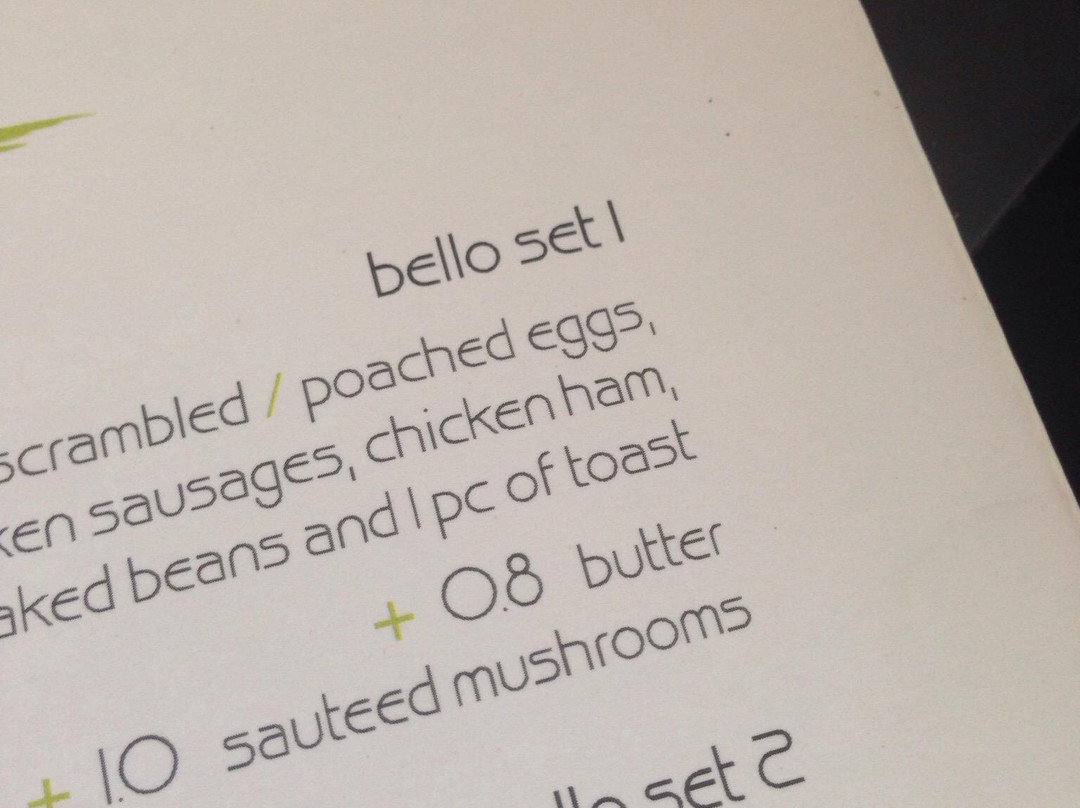 bello set 1
scrambled / poached eggs,
sausages, chicken ham,
beans and 1 pc of toast
+ 0.8 butter
+ 1.0 sauteed mushrooms
set 2